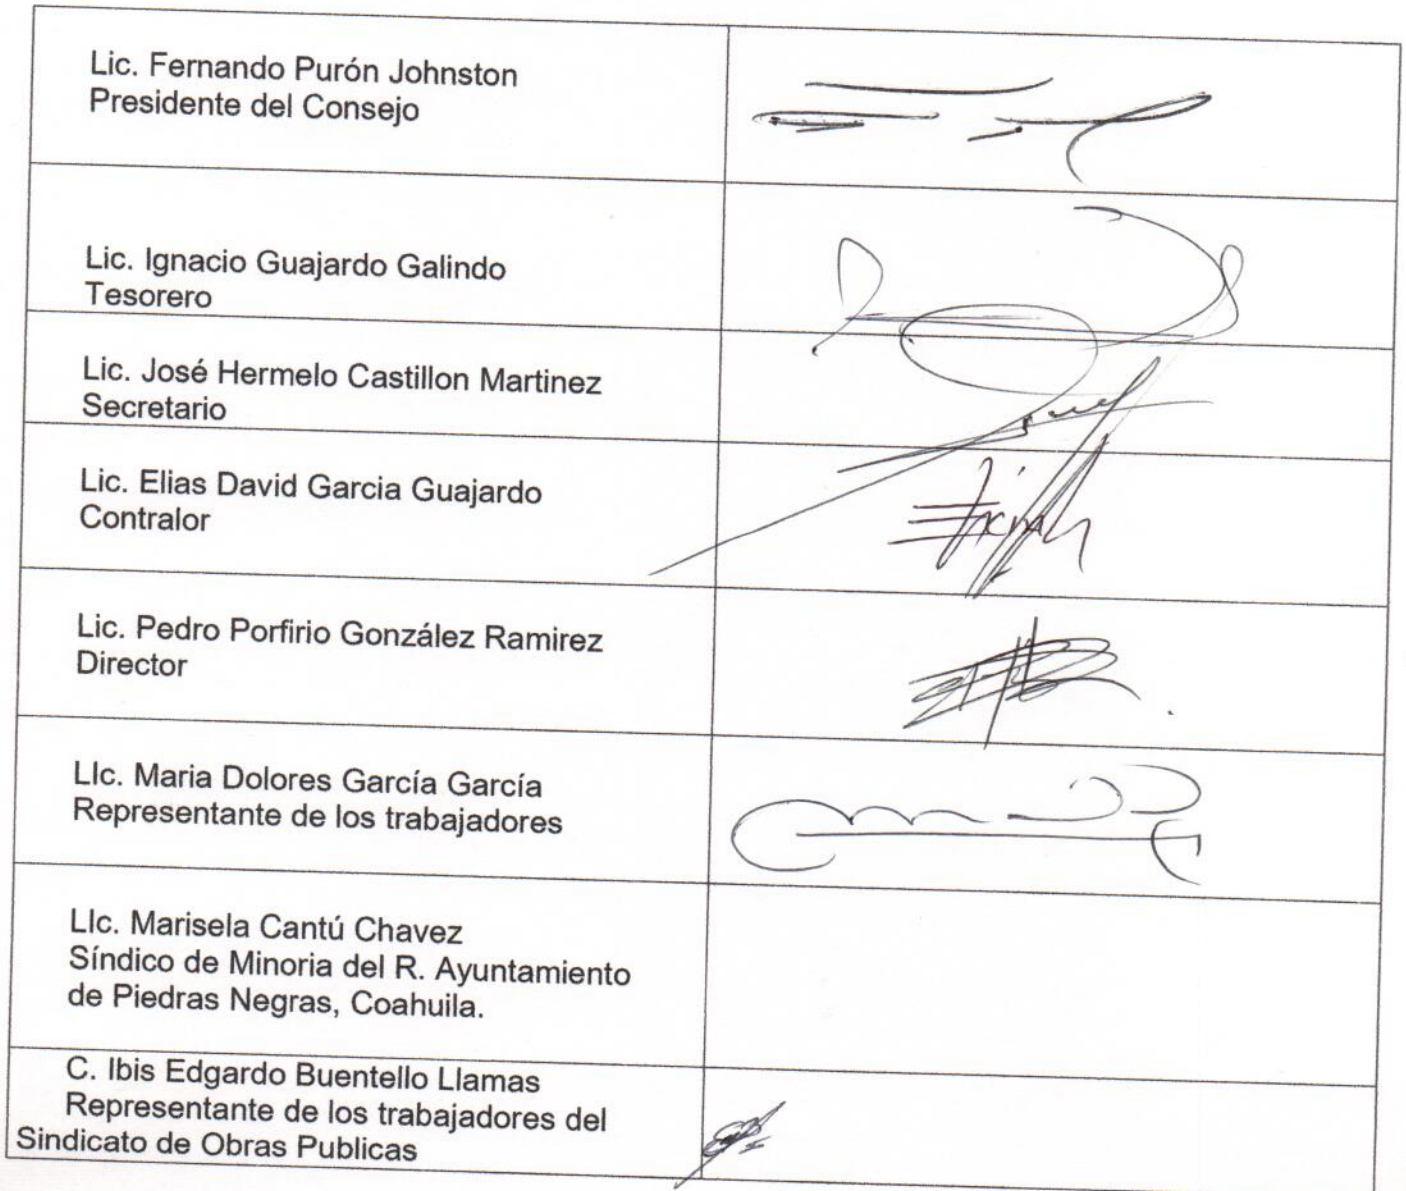 Lic. Fernando Purón Johnston
Presidente del Consejo
Lic. Ignacio Guajardo Galindo
Tesorero
Lic. José Hermelo Castillon Martinez
Secretario
Lic. Elias David Garcia Guajardo
Contralor
Lic. Pedro Porfirio González Ramirez
Director
LIc. Maria Dolores García García
Representante de los trabajadores
LIc. Marisela Cantú Chavez
Síndico de Minoria del R. Ayuntamiento
de Piedras Negras, Coahuila.
C. Ibis Edgardo Buentello Llamas
Representante de los trabajadores del
Sindicato de Obras Publicas